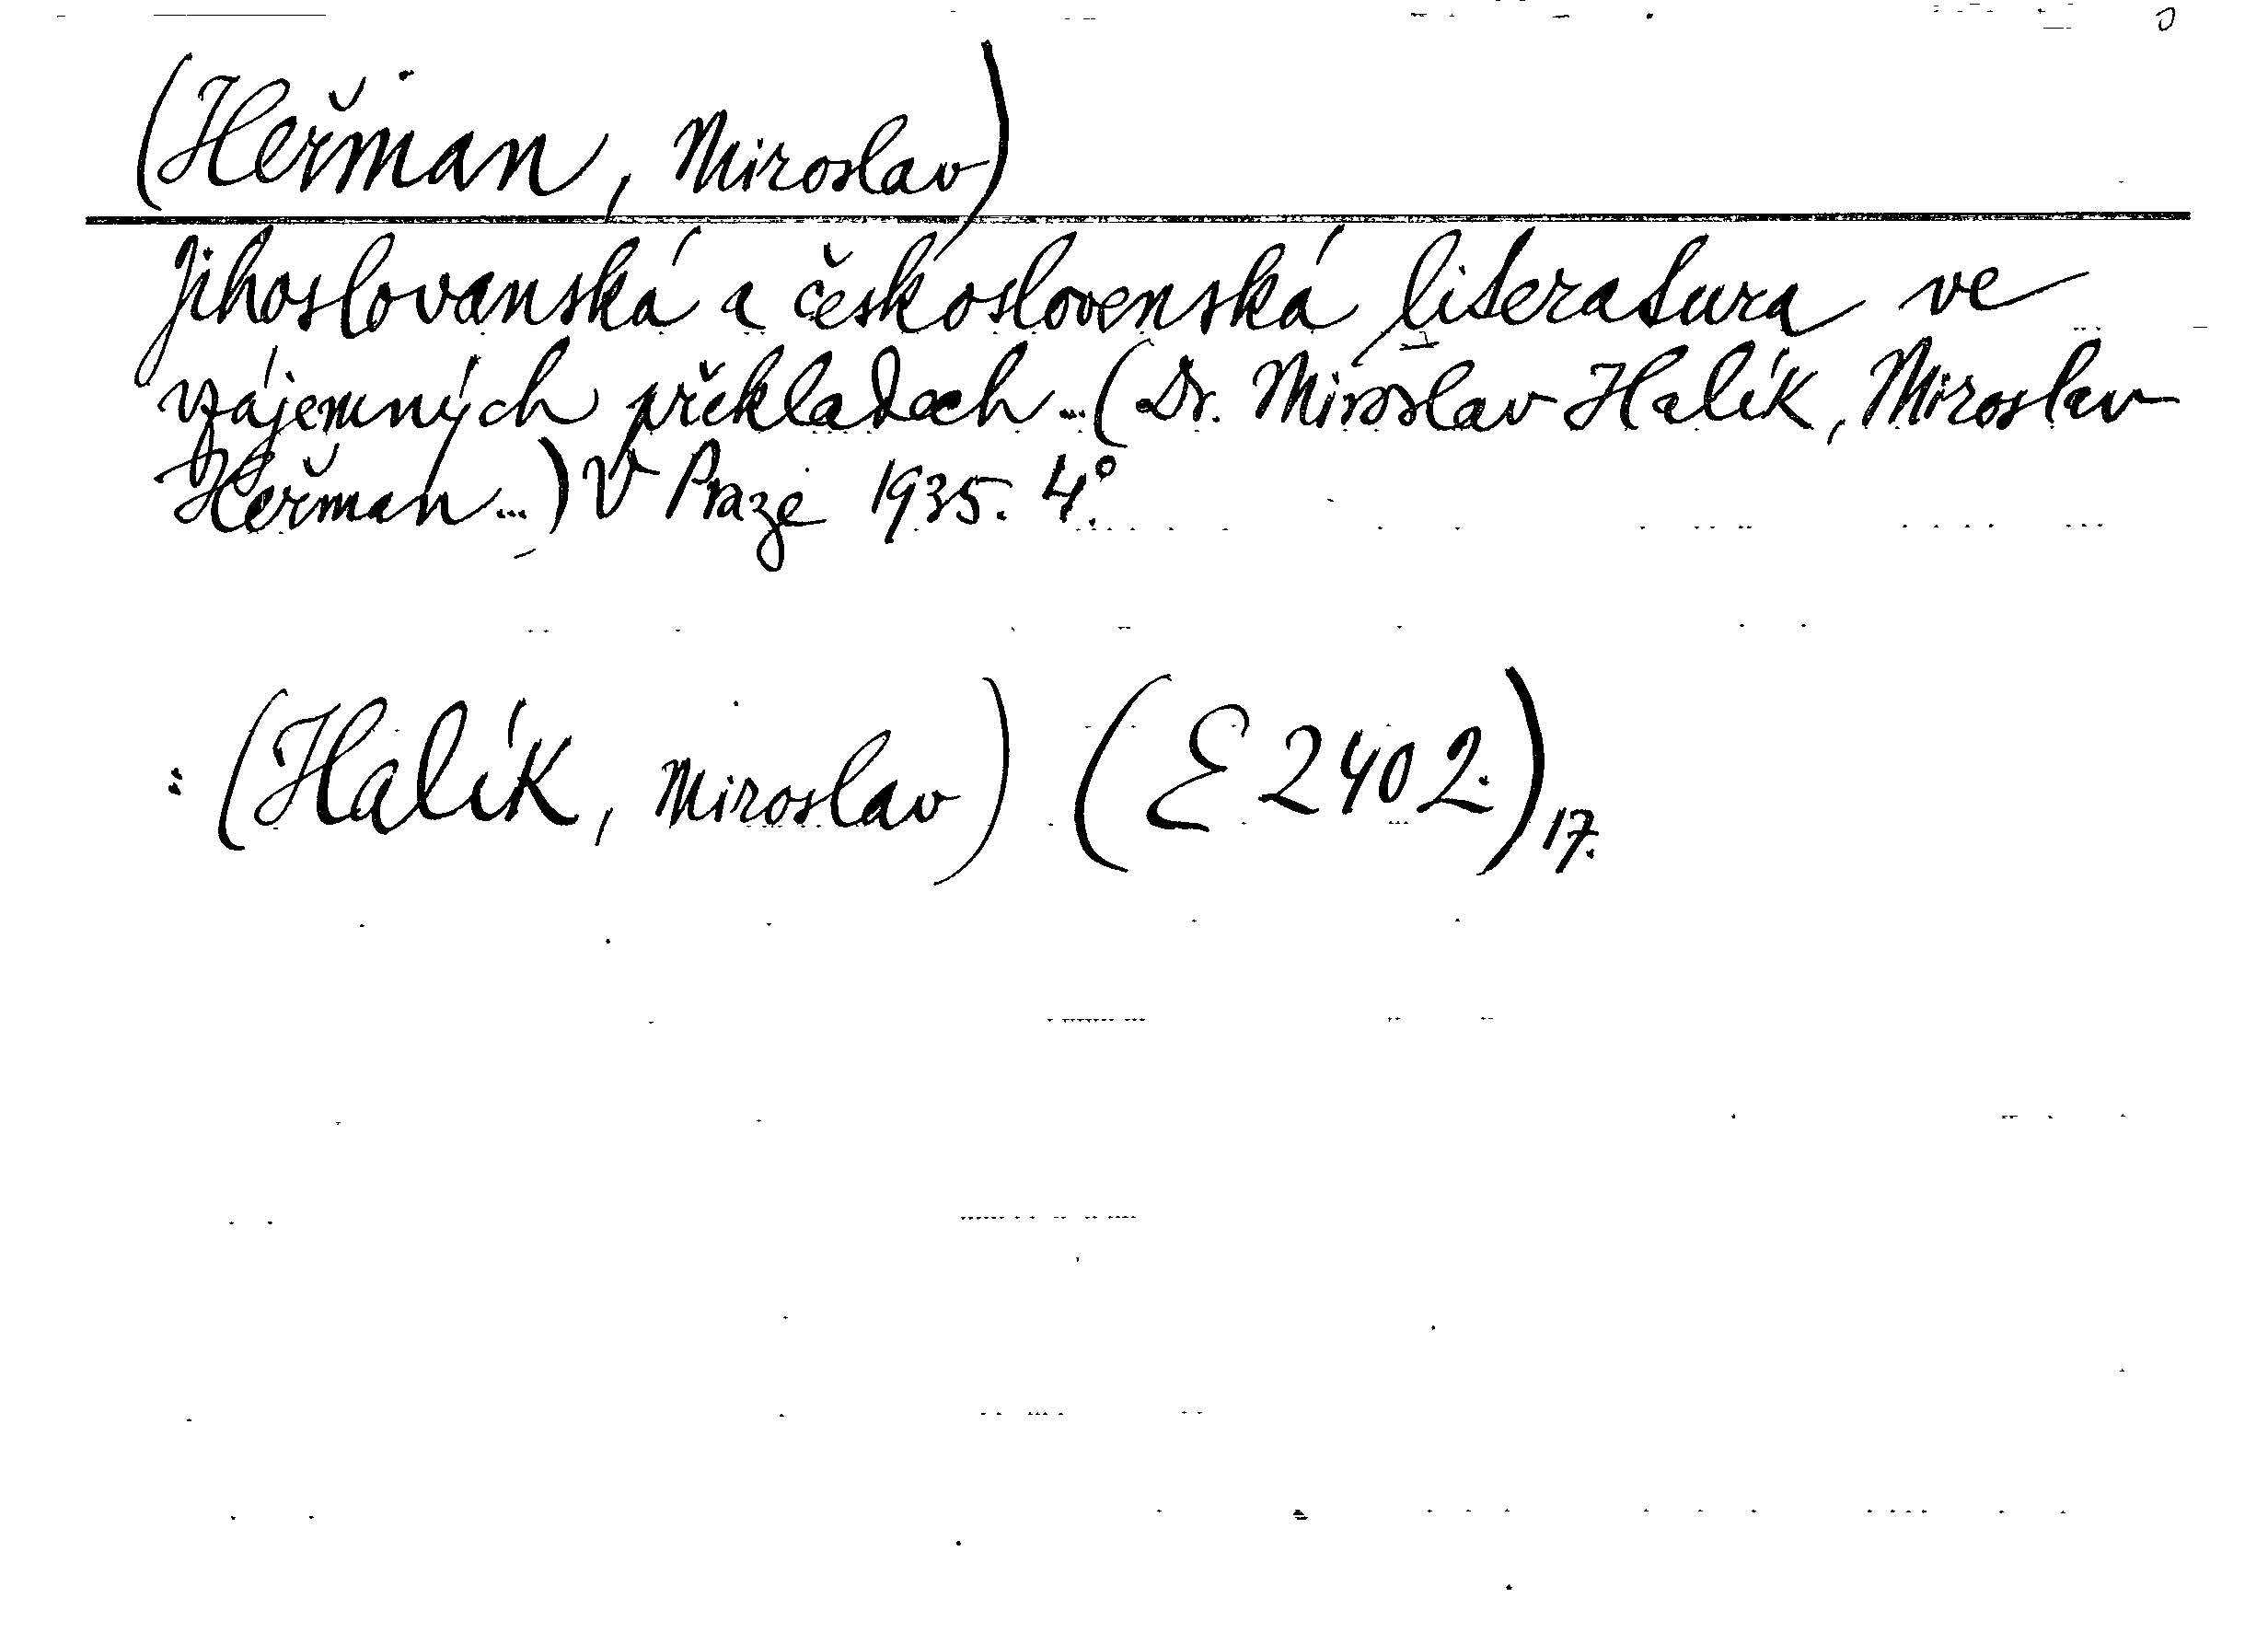 (Heřman, Miroslav)
Jihoslovanská a československá literatura ve
vzájemných překladech ... (Dr. Miroslav Halík, Miroslav
Heřman ...) V Praze 1935. 4°.
: (Halík, Miroslav) (E 2402.) 17.